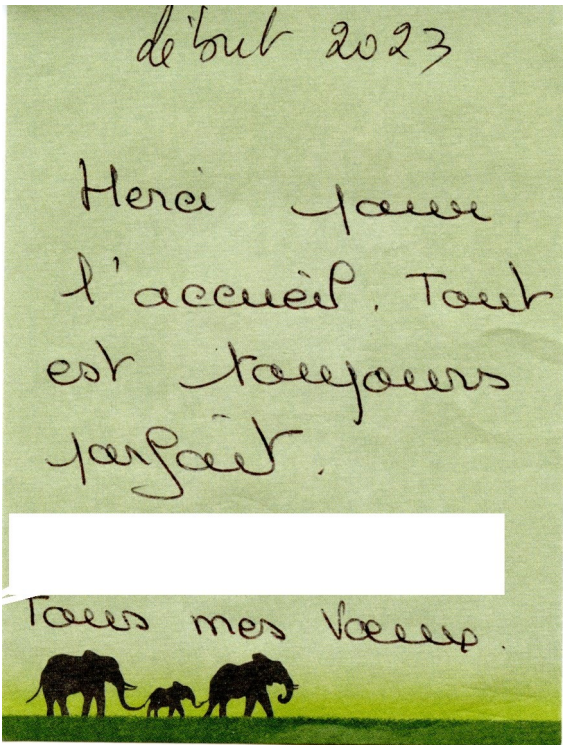 début 2023
Merci pour
l'accueil. Tout
est toujours
parfait.
Tous mes vœux.